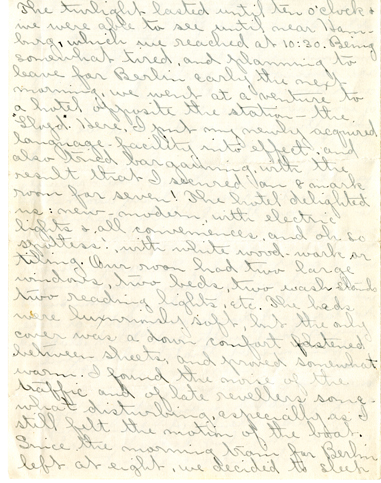 The twilight lasted until ten o'clock &
we were able to see until near Ham-
burg, which we reached at 10:30. Being
somewhat tired, and planning to
leave for Berlin early the next
morning, we went at a venture to
a hotel opposite the station - the
Lloyd. Here, I put my newly acquired
language facility into effect, and
also tried bargaining, with the
result that I secured an 8 mark
room for seven! The hotel delighted
us: new - modern, with electric
lights & all conveniences, and oh so
spotless!, with white wood-work or
tiling. Our room had two large
windows, two beds, two wash stands
two reading lights, etc. The beds
were luxuriously soft, but the only
cover was a down comfort fastened
between sheets, and proved somewhat
warm. I found the noise of the
traffic and of late revellers some-
what disturbing, especially as I
still felt the motion of the boat.
Since the morning train for Berlin
left at eight, we decided to sleep